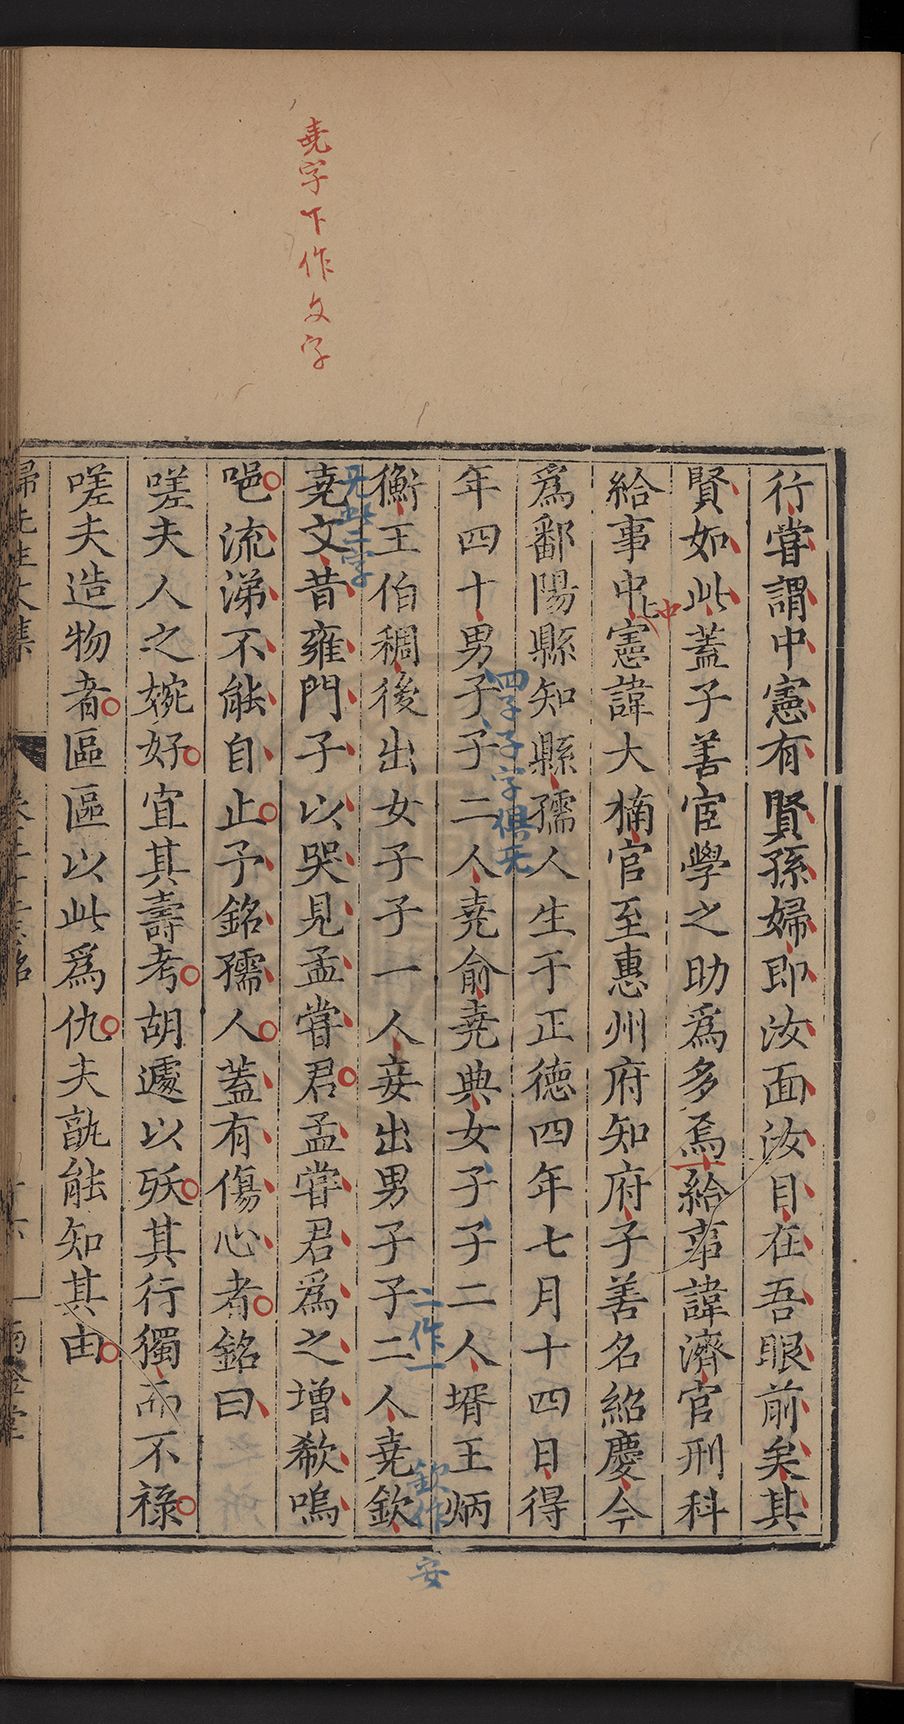 堯字下作文字
行嘗謂中憲有賢孫婦即汝面汝目在吾眼前矣其
賢如此蓋子善宦學之助爲多焉給事諱濟官刑科
給事中憲諱大楠官至惠州府知府子善名紹慶今
中
爲鄱陽縣知縣孺人生于正德四年七月十四日得
四子子字俱无
年四十男子子二人堯俞堯典女子子二人壻王炳
二作一
欽作安
衡王伯稠後出女子子一人妾出男子子二人堯欽
无此二字
堯文昔雍門子以哭見孟嘗君孟嘗君爲之增欷嗚
唈流涕不能自止予銘孺人蓋有傷心者銘曰
嗟夫人之婉好宜其壽考胡遽以殀其行獨而不祿
嗟夫造物者區區以此爲仇夫孰能知其由
歸先生文集